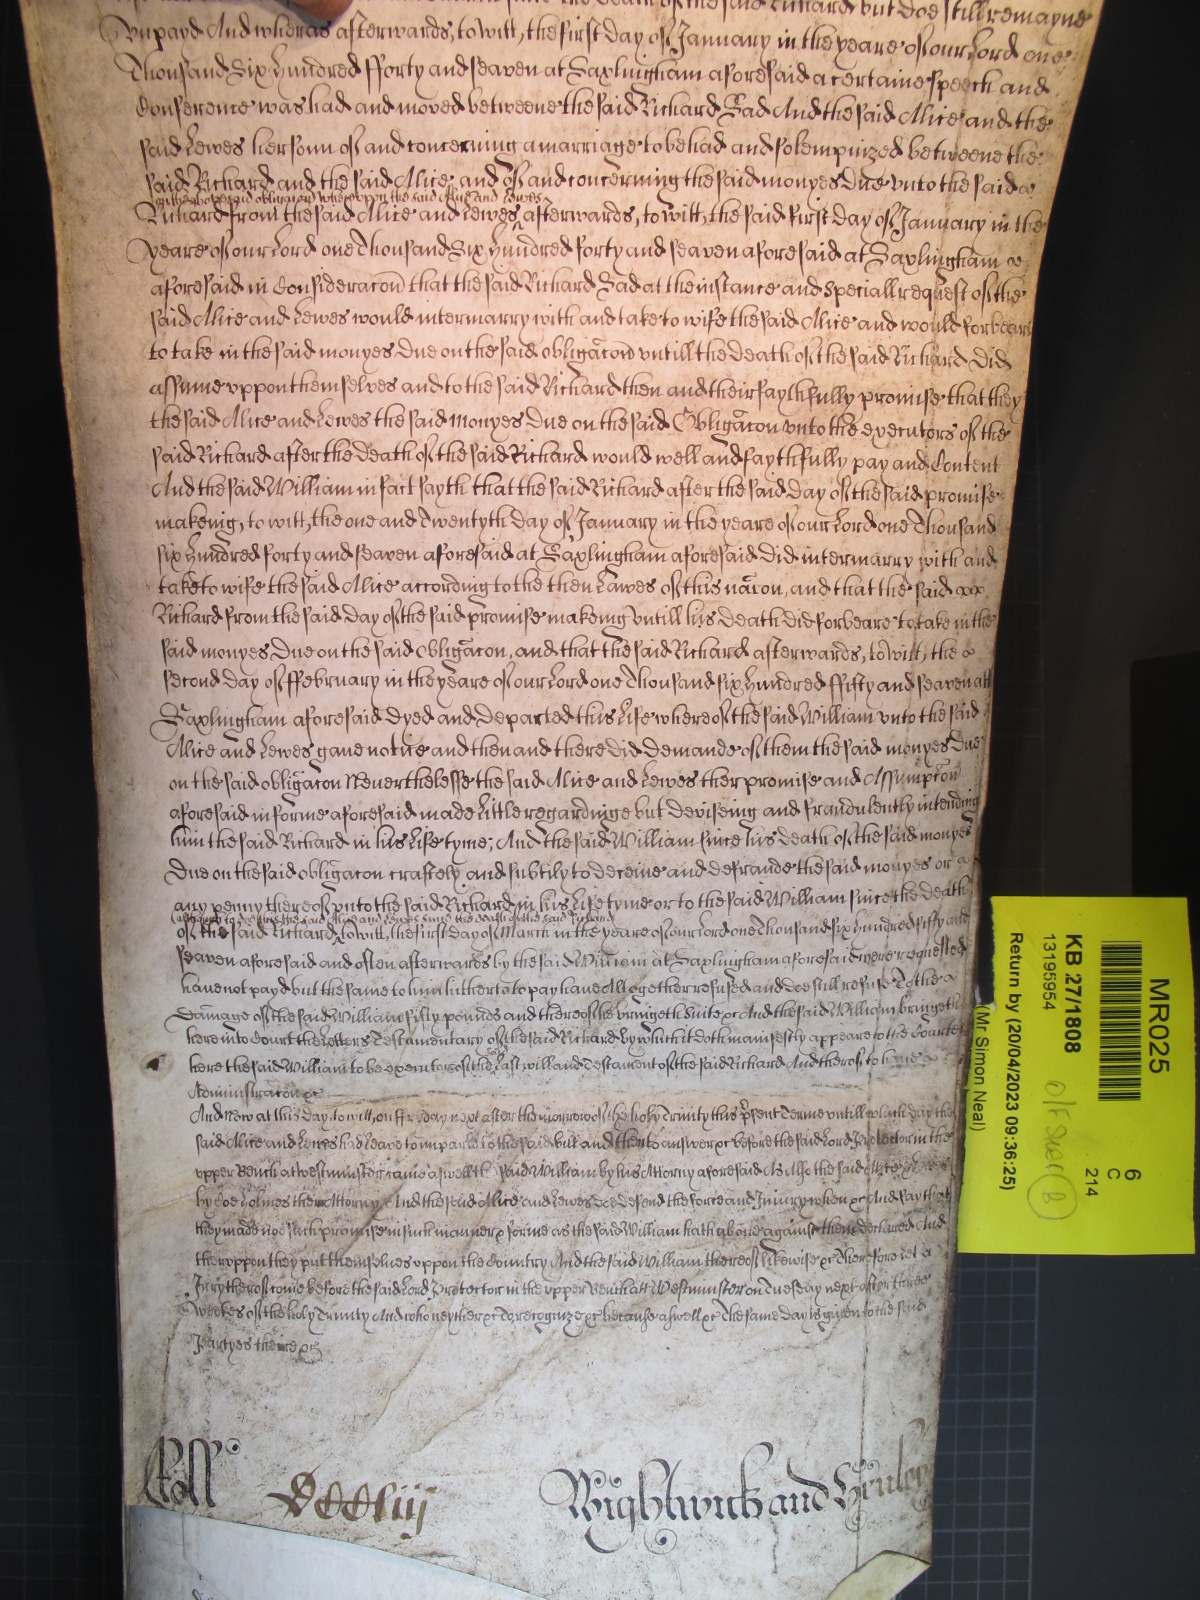 since the death of the said Richard but doe still remayne
vnpayd And whereas afterwards, to witt, the first day of January in the yeare of our Lord one
Thousand Six hundred fforty and seaven at Saxlingham aforesaid a certaine speech and
Conference was had and moved betweene the said Richard Gad And the said Alice and the
said Lewes her sonn of and concerning a marriage to be had and solempnized betweene the
said Richard and the said Alice and of and concerning the said monyes due vnto the said
on the aforesaid obligacon wherevpon the said Alice and Lewes
Richard from the said Alice and Lewes afterwards, to witt, the said first day of January in the
yeare of our Lord one Thousand Six hundred forty and seaven aforesaid at Saxlingham
aforesaid in Consideracon that the said Richard Gad at the instance and speciall request of the
said Alice and Lewes would intermarry with and take to wife the said Alice and would forbeare
to take in the said monyes due on the said obligacon vntill the death of the said Richard did
assume vppon themselves and to the said Richard then and their faythfully promise that they
the said Alice and Lewes the said monyes due on the said Obligacon vnto the executors of the
said Richard after the death of the said Richard would well and faythfully pay and Content
And the said William in fact sayth that the said Richard after the said day of the said promise
makeing, to witt, the one and Twentyth day of January in the yeare of our Lord one Thousand
six hundred forty and seaven aforesaid at Saxlingham aforesaid did intermarry with and
take to wife the said Alice according to the then Lawes of this nacon, and that the said
Richard from the said day of the said promise makeing vntill his death did forbeare to take in the
said monyes due on the said obligacon, and that the said Richard afterwards, to witt, the
second day of ffebruary in the yeare of our Lord one Thousand six hundred ffifty and seaven att
Saxlingham aforesaid dyed and departed this Life whereof the said William vnto the said
Alice and Lewes gave notice and then and there did demande of them the said monyes due
on the said obligacon Neverthelesse the said Alice and Lewes ther promise and Assumpcon
aforesaid in forme aforesaid made Little regardinge but deviseing and fraudulently intending
him the said Richard in his Life tyme; And the said William since his death of the said monyes
due on the said obligacon craftely and subtily to deceive and defraude the said monyes or
any penny thereof vnto the said Richard in his Life tyme or to the said William since the death
the said Alice and Lewes since the death of the said Richard
of the said Richard, to witt, the first day of March in the yeare of our Lord one Thousand six hundred fifty and
seaven aforesaid and often afterwards by the said William at Saxlingham aforesaid were requested
have not payd but the same to him hitherto to pay have Altogether refused and doe still refuse To the
damage of the said William fifty pounds and thereof he bringeth suite &c And the said William bringeth
here into Court the Letters Testamentary of the said Richard by which it doth manifestly appeare to the Court
here the said William to be executor of the Last will and Testament of the said Richard And thereof to have
Administracon &c
And now at this day, to witt, on ffryday next after the morrow of the holy Trinity this present Terme untill which day the
said Alice and Lewes had Leave to imparle to the said bill and then to answer &c before the said Lord Protector in the
vpper Bench at westminster came aswell the said William by his Attorny aforesaid As Also the said Alice and Lewes
by Holmes their Attorny And the said Alice and Lewes doe defend the force and Iniury when &c And say that
they made noe such promise in such manner & forme as the said William hath above against them declared And
therevppon they put themselves vppon the Country And the said William thereof likewise &c Therefore let a
Jury thereof come before the said Lord Protector in the vpper Bench att Westminster on Tuesday next after three
weekes of the holy Trinity And who neyther &c To recognize &c because aswell &c The same day is given to the said
Partyes there &c
Roll
DCCCLiij
Wightwick and
MR025
6
C
214
KB 27/1808
13195954
Return by (20/04/2023 09:36:25)
(Mr Simon Neal)